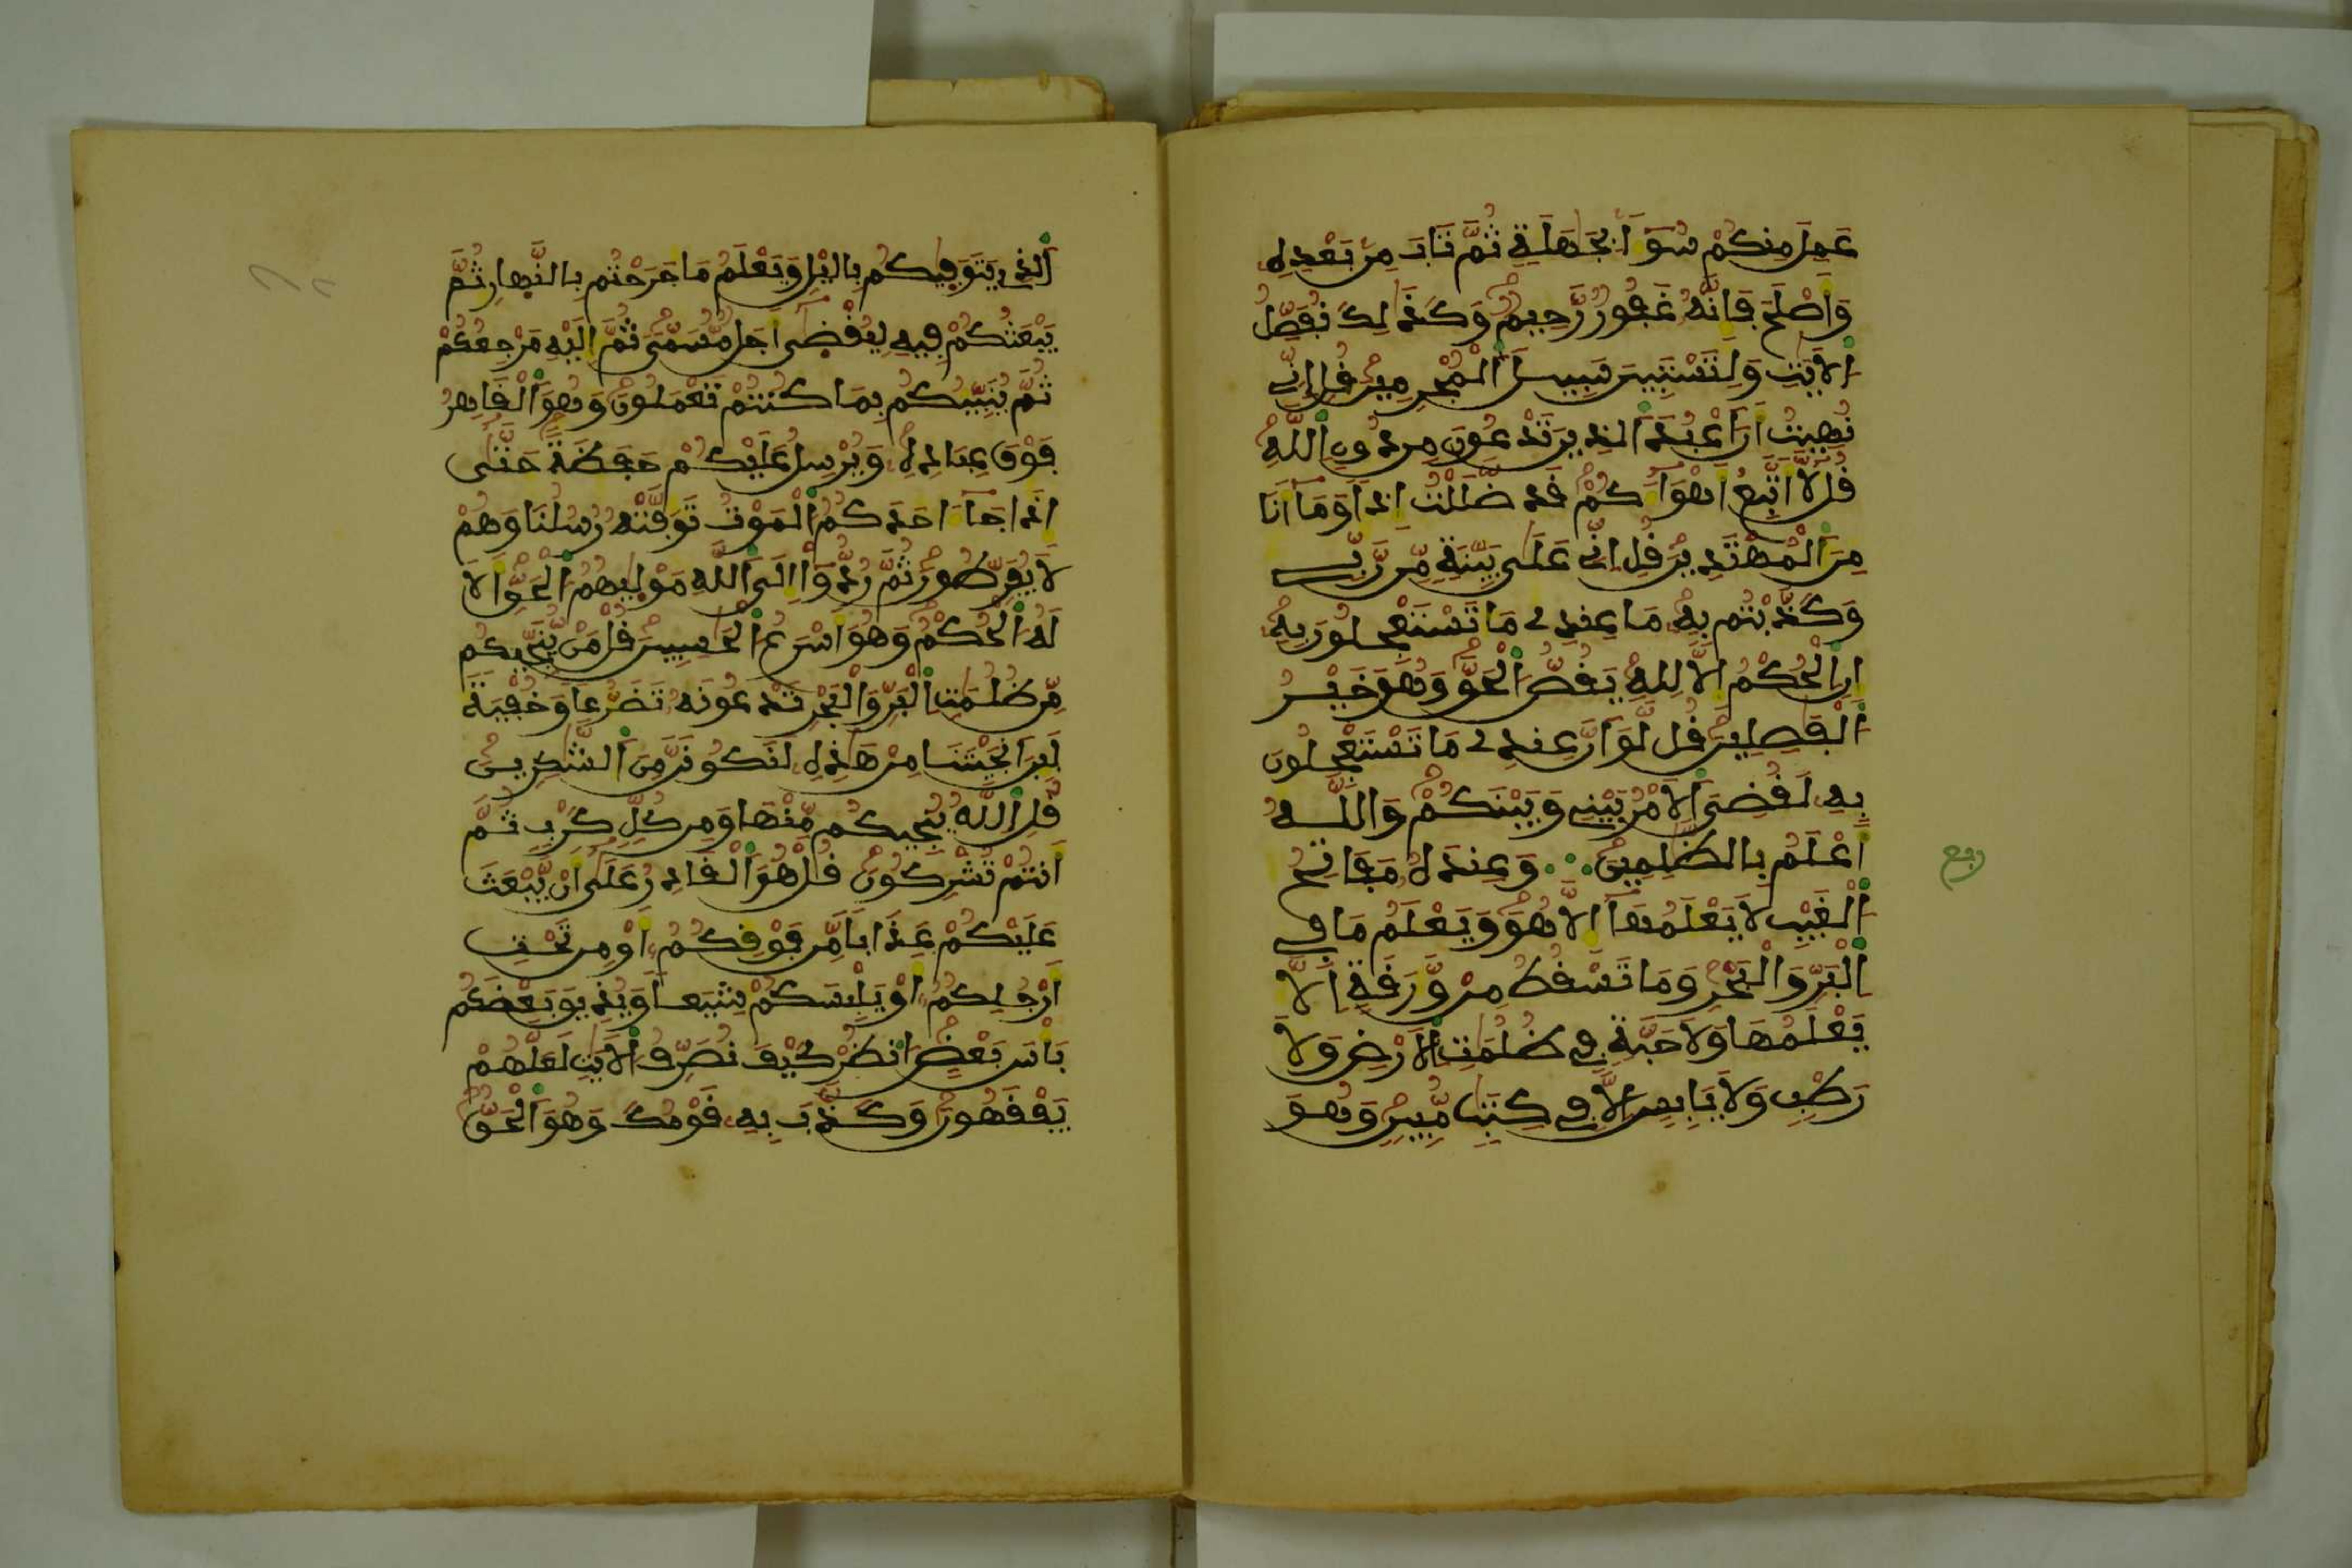 عَمِلَ مِنكُمْ سُوَٓءاً بِجَهَٰلَةٍ ثُمَّ تَابَ مِنۢ بَعْدِهِۦ
وَأَصْلَحَ فَإِنَّهُۥ غَفُورٌ رَّحِيمٌ وَكَذَٰلِكَ نُفَصِّلُ
اُ۬لَايَٰتِ وَلِتَسْتَبِينَ سَبِيلَ اَ۬لْمُجْرِمِينَ قُلِ اِنِّے
نُهِيتُ أَنَ اَعْبُدَ اَ۬لذِينَ تَدْعُونَ مِن دُونِ اِ۬للَّهِ
قُل لَّآ أَتَّبِعُ أَهْوَآءَكُمْ قَد ضَّلَلْتُ إِذاً وَمَآ أَنَا
مِنَ اَ۬لْمُهْتَدِينَ قُلِ اِنِّے عَلَىٰ بَيِّنَةٍ مِّن رَّبِّے
وَكَذَّبْتُم بِهِۦ مَا عِندِے مَا تَسْتَعْجِلُونَ بِهِۦٓ
إِنِ اِ۬لْحُكْمُ إِلَّا لِلهِ يَقُصُّ اُ۬لْحَقَّ وَهُوَ خَيْرُ
اُ۬لْفَٰصِلِينَ قُل لَّوَ اَنَّ عِندِے مَا تَسْتَعْجِلُونَ
بِهِۦ لَقُضِيَ اَ۬لَامْرُ بَيْنِے وَبَيْنَكُمْ وَاللَّهُ
أَعْلَمُ بِالظَّٰلِمِينَ وَعِندَهُۥ مَفَاتِحُ
اُ۬لْغَيْبِ لَا يَعْلَمُهَآ إِلَّا هُوَ وَيَعْلَمُ مَا فِے
اِ۬لْبَرِّ وَالْبَحْرِ وَمَا تَسْقُطُ مِنْ وَّرَقَةٍ اِلَّا
يَعْلَمُهَا وَلَا حَبَّةٍ فِے ظُلُمَٰتِ اِ۬لَارْضِ وَلَا
رَطْبٍ وَلَا يَابِسٍ اِلَّا فِے كِتَٰبٍ مُّبِينٍ وَهُوَ
ربع
اَ۬لذِے يَتَوَفَّيٰكُم بِاليْلِ وَيَعْلَمُ مَا جَرَحْتُم بِالنَّهارِ ثُمَّ
يَبْعَثُكُمْ فِيهِ لِيُقْضَىٰٓ أَجَلٌ مُّسَمّىً ثُمَّ إِلَيْهِ مَرْجِعُكُمْ
ثُمَّ يُنَبِّئُكُم بِمَا كُنتُمْ تَعْمَلُونَ وَهُوَ اَ۬لْقَاهِرُ
فَوْقَ عِبَادِهِۦ وَيُرْسِلُ عَلَيْكُمْ حَفَظَةً حَتَّىٰٓ
إِذَا جَآءَ احَدَكُمُ اُ۬لْمَوْتُ تَوَفَّتْهُ رُسُلُنَا وَهُمْ
لَا يُفَرِّطُونَ ثُمَّ رُدُّوٓاْ إِلَى اَ۬للَّهِ مَوْلَيٰهُمُ اُ۬لْحَقِّ أَلَا
لَهُ اُ۬لْحُكْمُ وَهُوَ أَسْرَعُ اُ۬لْحَٰسِبِينَ قُلْ مَنْ يُّنَجِّيكُم
مِّن ظُلُمَٰتِ اِ۬لْبَرِّ وَالْبَحْرِ تَدْعُونَهُۥ تَضَرُّعاً وَخُفْيَةً
لَّئِنَ اَنجَيْتَنَا مِنْ هَٰذِهِۦ لَنَكُونَنَّ مِنَ اَ۬لشَّٰكِرِينَ
قُلِ اِ۬للَّهُ يُنجِيكُم مِّنْهَا وَمِن كُلِّ كَرْبٍ ثُمَّ
أَنتُمْ تُشْرِكُونَ قُلْ هُوَ اَ۬لْقَادِرُ عَلَىٰٓ أَنْ يَّبْعَثَ
عَلَيْكُمْ عَذَاباً مِّن فَوْقِكُمُۥٓ أَوْ مِن تَحْتِ
أَرْجُلِكُمُۥٓ أَوْ يَلْبِسَكُمْ شِيَعاً وَيُذِيقَ بَعْضَكُم
بَأْسَ بَعْضٍ اُ۟نظُرْ كَيْفَ نُصَرِّفُ اُ۬لَايَٰتِ لَعَلَّهُمْ
يَفْقَهُونَ وَكَذَّبَ بِهِۦ قَوْمُكَ وَهُوَ اَ۬لْحَقُّ